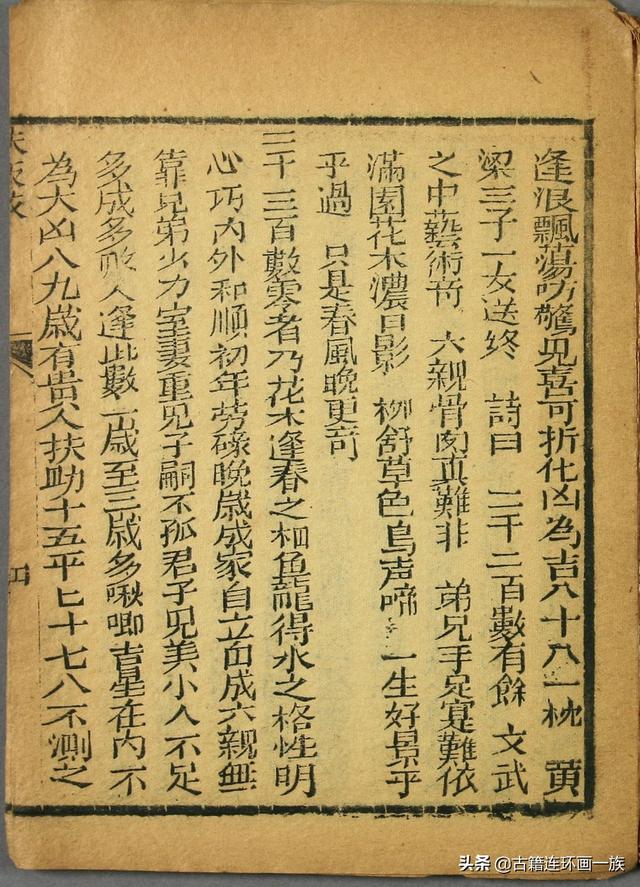 逢浪飄蕩叻驚見喜可折化凶為吉八十八一枕 黄
梁三子一女送終 詩曰 二千二百數有餘 文武
之中藝術奇 六親骨肉真難非 弟兄手足寔難依
滿園花木濃日影 柳舒草色鳥声啼 一生好景乎
乎過 只是春風晚更奇
三千三百數零者乃花木逢春之魚龍得水之格性明
心巧内外和順初年勞碌晚歲成家自立自成六親無
靠兄弟少力室妻重見子嗣不孤君子見美小人不足
多成多敗人逢此數一歲至三歲多啾唧吉星在内不
為大凶八九歲有貴人扶助十五平七十七八不測之
头条 @古籍连环画一族